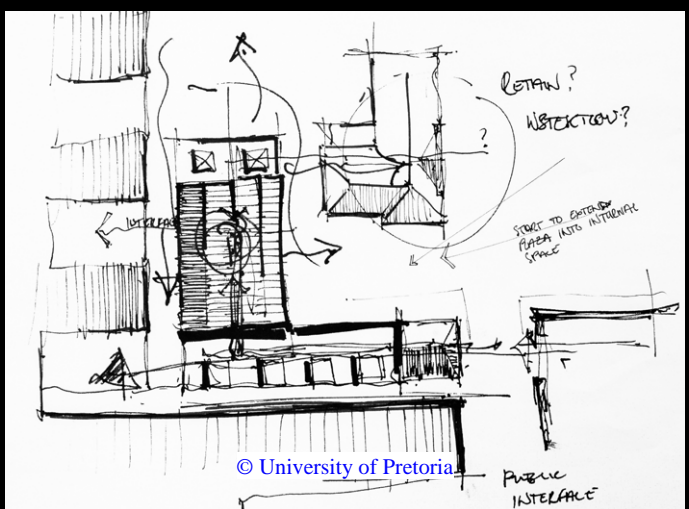 RETAIN?
?
INTERFACE
START TO EXTEND
PLAZA INTO INTERNAL
SPACE
© University of Pretoria
PUBLIC
INTERFACE